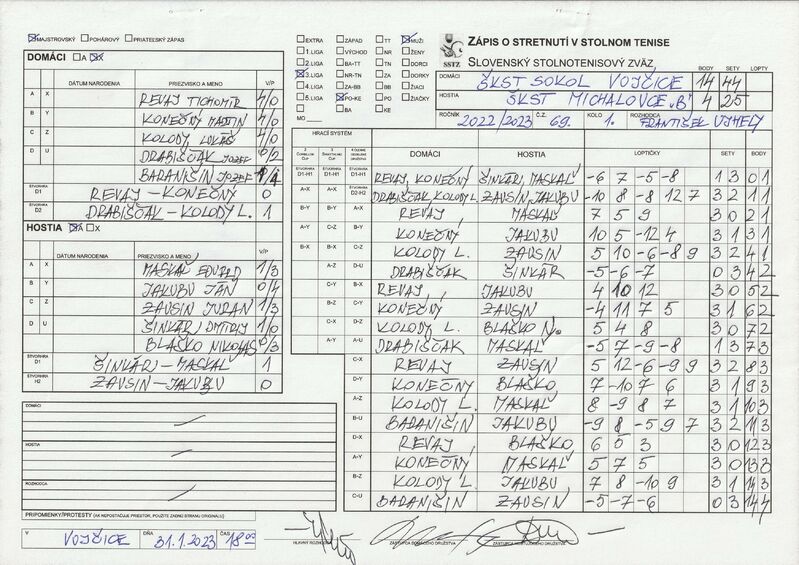 MAJSTROVSKÝ POHÁROVÝ PRIATEĽSKÝ ZÁPAS
DOMÁCI A X
DÁTUM NARODENIA PRIEZVISKO A MENO V/P
A X REVAJ TICHOMÍR 4/0
B Y KONEČNÝ MARTIN 4/0
C Z KOLODY LUKÁŠ 4/0
D U DRABIŠČAK JOZEF 0/2
BARANIŠIN JOZEF 1/1
ŠTVORHRA D1 REVAJ – KONEČNÝ 0
ŠTVORHRA D2 DRABIŠČAK – KOLODY L. 1
HOSTIA A X
DÁTUM NARODENIA PRIEZVISKO A MENO V/P
A X MASKAĽ EDUARD 1/3
B Y JAKUBU JÁN 0/4
C Z ZAVSIN JURAN 1/3
D U ŠINKÁR, DMITRIJ 1/0
BLAŠKO NIKOLAS 0/3
ŠTVORHRA D1 ŠINKÁR – MASKAĽ 1
ŠTVORHRA H2 ZAVSIN – JAKUBU 0
DOMÁCI
HOSTIA
ROZHODCA
PRIPOMIENKY/PROTESTY (AK NEPOSTAČUJE PRIESTOR, POUŽITE ZADNÚ STRANU ORIGINÁLU)
V VOJČICE DŇA 31.1.2023 ČAS 18 00
EXTRA ZÁPAD TT MUŽI
1. LIGA VÝCHOD NR ŽENY
2. LIGA BA-TT TN DORCI
3. LIGA NR-TN ZA DORKY
4. LIGA ZA-BB BB ŽIACI
5. LIGA PO-KE PO ŽIAČKY
MO BA KE
SSTZ
ZÁPIS O STRETNUTÍ V STOLNOM TENISE
SLOVENSKÝ STOLNOTENISOVÝ ZVÄZ
BODY SETY LOPTY
DOMÁCI ŠKST SOKOL VOJČICE 14 44
HOSTIA ŠKST MICHALOVCE „B“ 4 25
ROČNÍK 2022/2023 Č.Z. 69. KOLO 1. ROZHODCA FRANTIŠEK UJHELY
HRACÍ SYSTÉM
DOMÁCI HOSTIA LOPTIČKY SETY BODY
ŠTVORHRA D1-H1 ŠTVORHRA D1-H1 ŠTVORHRA D1-H1 REVAJ, KONEČNÝ ŠINKÁR, MASKAĽ -6 7 -5 -8 1 3 0 1
A-X A-X ŠTVORHRA D2-H2 DRABIŠČAK, KOLODY L. ZAVSIN, JAKUBU -10 8 -8 12 7 3 2 1 1
B-Y B-Y A-X REVAJ MASKAĽ 7 5 9 3 0 2 1
A-Y C-Z B-Y KONEČNÝ JAKUBU 10 5 -12 4 3 1 3 1
B-X B-X C-Z KOLODY L. ZAVSIN 5 10 -6 -8 9 3 2 4 1
A-Z D-U DRABIŠČAK ŠINKÁR -5 -6 -7 0 3 4 2
C-Y B-X REVAJ JAKUBU 4 10 12 3 0 5 2
B-Z C-Y KONEČNÝ ZAVSIN -4 11 7 5 3 1 6 2
C-X D-Z KOLODY L. BLAŠKO N. 5 4 8 3 0 7 2
A-Y A-U DRABIŠČAK MASKAĽ -5 7 -9 -8 1 3 7 3
C-X REVAJ ZAVSIN 5 12 -6 -9 9 3 2 8 3
D-Y KONEČNÝ BLAŠKO 7 -10 7 6 3 1 9 3
A-Z KOLODY L. MASKAĽ 8 -9 8 7 3 1 10 3
B-U BARANIŠIN JAKUBU -9 8 -5 9 7 3 2 11 3
D-X REVAJ BLAŠKO 6 5 3 3 0 12 3
A-Y KONEČNÝ MASKAĽ 5 7 5 3 0 13 3
B-Z KOLODY L. JAKUBU 7 8 -10 9 3 1 14 3
C-U BARANIŠIN ZAVSIN -5 -7 -6 0 3 14 4
HLAVNÝ ROZHODCA ZÁSTUPCA DOMÁCEHO DRUŽSTVA ZÁSTUPCA HOSŤUJÚCEHO DRUŽSTVA